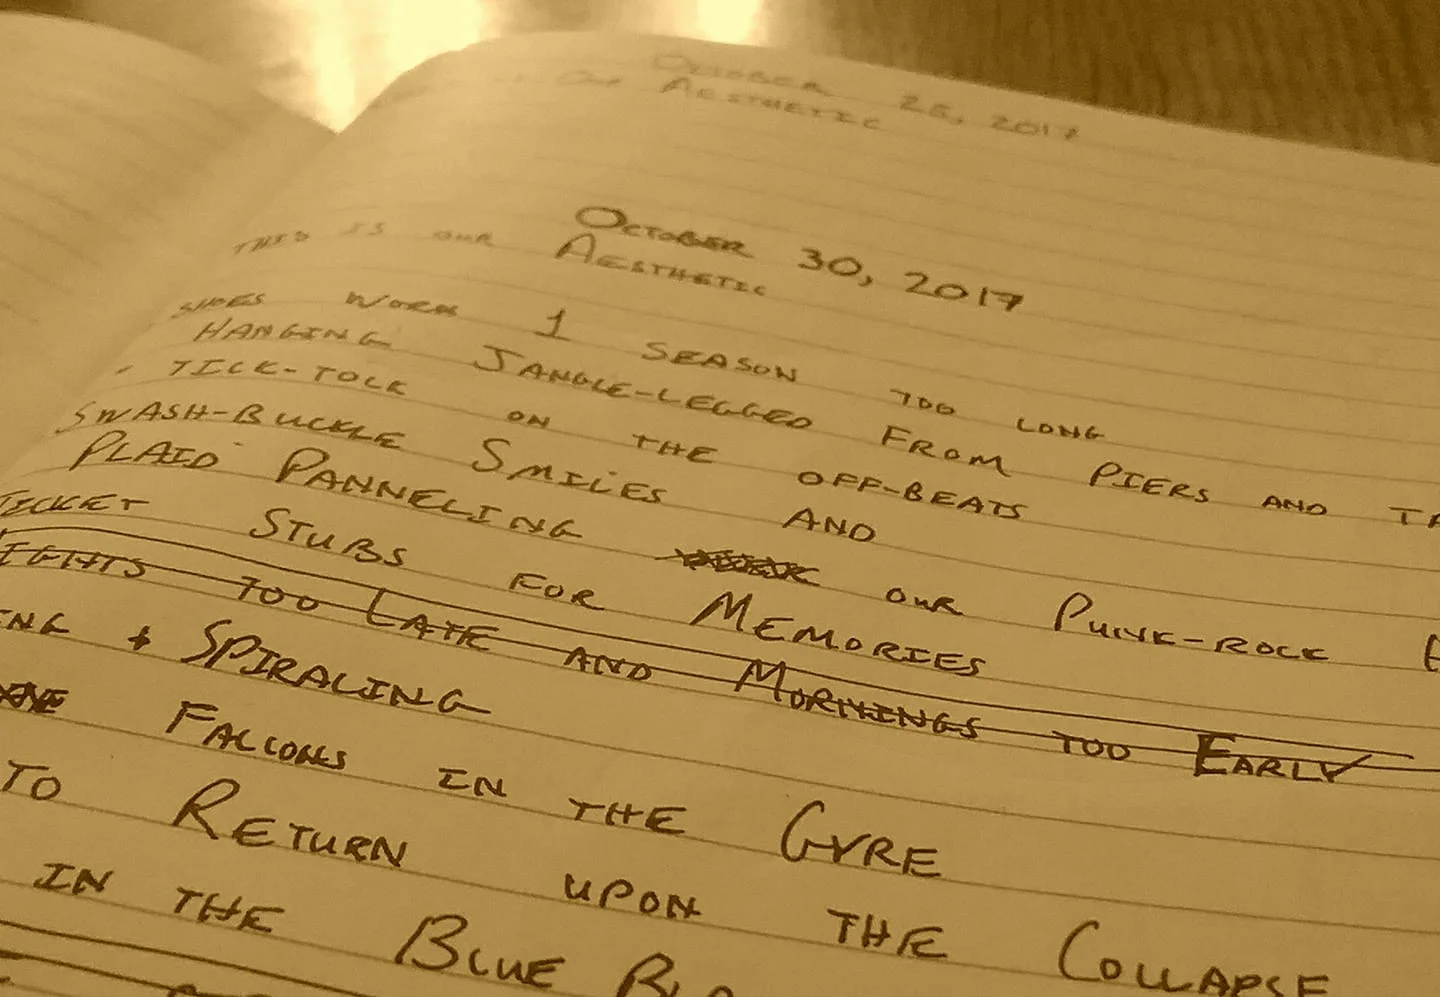 October 25, 2017
Our Aesthetic
October 30, 2017
This is our Aesthetic
Shoes worn 1 season too long
Hanging Jangle-legged from piers and
Tick-tock on the off-beats
Swash-buckle smiles and
Plaid Panneling our Punk-rock
Ticket stubs for Memories
too Late and Mornings too Early
& Spiraling
Falcons in the Gyre
to Return upon the Collapse
in the Blue